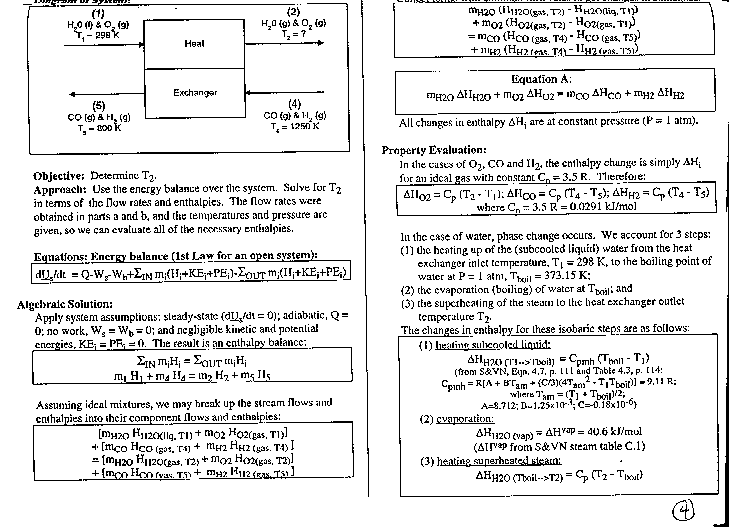 Diagram of System:
(1)
H₂0 (l) & O₂ (g)
T₁ = 298 K
(2)
H₂0 (g) & O₂ (g)
T₂ = ?
Heat
Exchanger
(5)
CO (g) & H₂ (g)
T₅ = 800 K
(4)
CO (g) & H₂ (g)
T₄ = 1250 K
Objective: Determine T₂.
Approach: Use the energy balance over the system. Solve for T₂
in terms of the flow rates and enthalpies. The flow rates were
obtained in parts a and b, and the temperatures and pressure are
given, so we can evaluate all of the necessary enthalpies.
Equations: Energy balance (1st Law for an open system):
dUₛ/dt = Q-Wₛ-W_b+Σ_IN mᵢ(Hᵢ+KEᵢ+PEᵢ)-Σ_OUT mᵢ(Hᵢ+KEᵢ+PEᵢ)
Algebraic Solution:
Apply system assumptions: steady-state (dUₛ/dt = 0); adiabatic, Q =
0; no work, Wₛ = W_b = 0; and negligible kinetic and potential
energies, KEᵢ = PEᵢ = 0. The result is an enthalpy balance:
Σ_IN mᵢHᵢ = Σ_OUT mᵢHᵢ
m₁ H₁ + m₄ H₄ = m₂ H₂ + m₅ H₅
Assuming ideal mixtures, we may break up the stream flows and
enthalpies into their component flows and enthalpies:
[m_H2O H_H2O(liq, T1) + m_O2 H_O2(gas, T1)]
+ [m_CO H_CO (gas, T4) + m_H2 H_H2 (gas, T4) ]
= [m_H2O H_H2O(gas, T2) + m_O2 H_O2(gas, T2)]
+ [m_CO H_CO (gas, T5) + m_H2 H_H2 (gas, T5)]
m_H2O (H_H2O(gas, T2) - H_H2O(liq, T1))
+ m_O2 (H_O2(gas, T2) - H_O2(gas, T1))
= m_CO (H_CO (gas, T4) - H_CO (gas, T5))
+ m_H2 (H_H2 (gas, T4) - H_H2 (gas, T5))
Equation A:
m_H2O ΔH_H2O + m_O2 ΔH_O2 = m_CO ΔH_CO + m_H2 ΔH_H2
All changes in enthalpy ΔHᵢ are at constant pressure (P = 1 atm).
Property Evaluation:
In the cases of O₂, CO and H₂, the enthalpy change is simply ΔHᵢ
for an ideal gas with constant Cₚ = 3.5 R. Therefore:
ΔH_O2 = Cₚ (T₂ - T₁); ΔH_CO = Cₚ (T₄ - T₅); ΔH_H2 = Cₚ (T₄ - T₅)
where Cₚ = 3.5 R = 0.0291 kJ/mol
In the case of water, phase change occurs. We account for 3 steps:
(1) the heating up of the (subcooled liquid) water from the heat
exchanger inlet temperature, T₁ = 298 K, to the boiling point of
water at P = 1 atm, T_boil = 373.15 K;
(2) the evaporation (boiling) of water at T_boil; and
(3) the superheating of the steam to the heat exchanger outlet
temperature T₂.
The changes in enthalpy for these isobaric steps are as follows:
(1) heating subcooled liquid:
ΔH_H2O (T1-->Tboil) = C_pmh (T_boil - T₁)
(from S&VN, Eqn. 4.7, p. 111 and Table 4.3, p. 114:
C_pmh = R[A + BT_am + (C/3)(4T_am² - T₁T_boil)] = 9.11 R;
where T_am = (T₁ + T_boil)/2;
A=8.712; B=1.25x10⁻³; C=-0.18x10⁻⁶)
(2) evaporation:
ΔH_H2O (vap) = ΔH^vap = 40.6 kJ/mol
(ΔH^vap from S&VN steam table C.1)
(3) heating superheated steam:
ΔH_H2O (Tboil-->T2) = Cₚ (T₂ - T_boil)
4